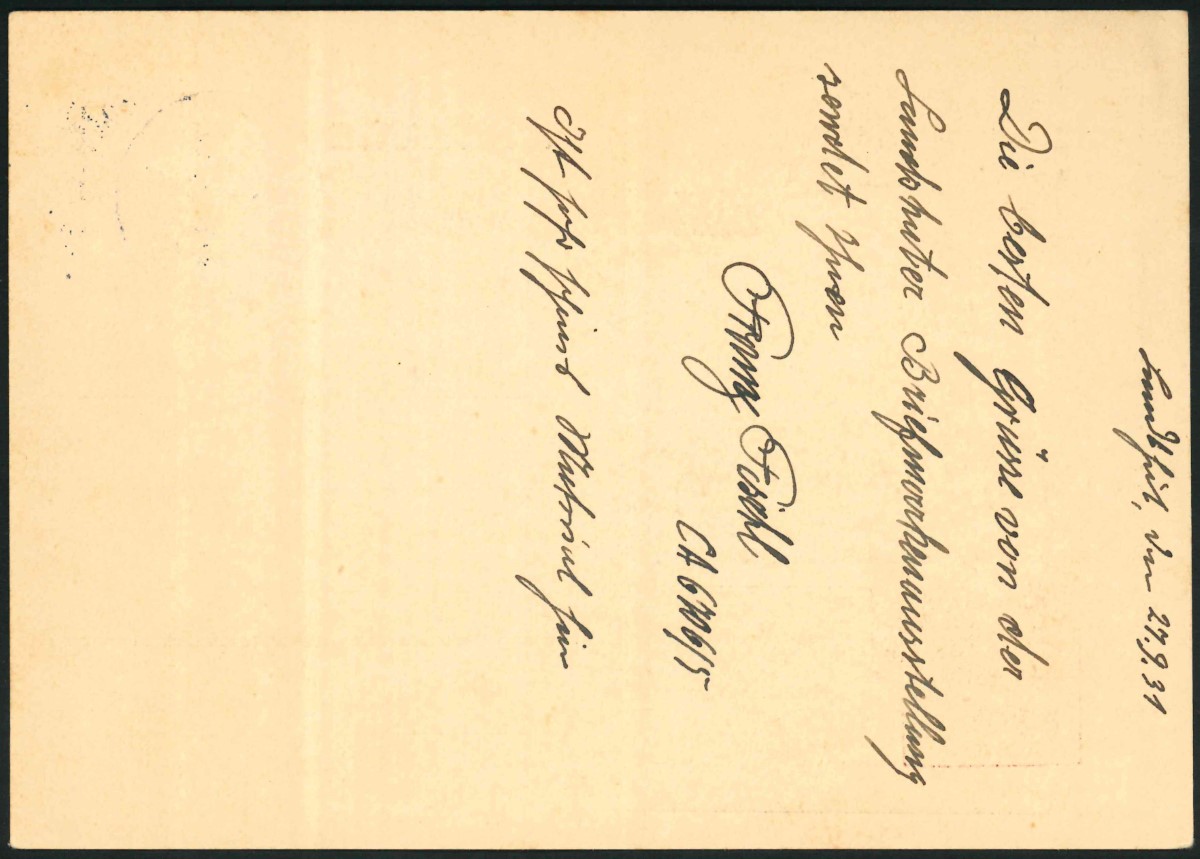 Landshut, den 27.9.31
Die besten Grüsse von der
Landshuter Briefmarkenausstellung
sendet Ihnen
Franz Fischl
CA 6706/5
Ist sehr schönes Material hier